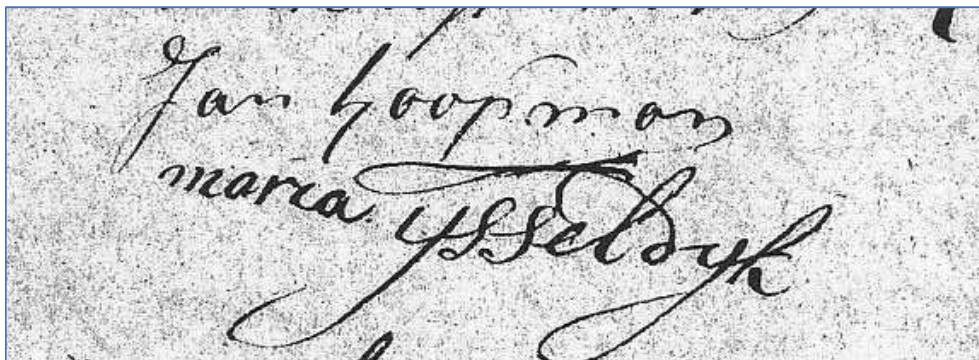 Jan hoopman
maria ysseldyk